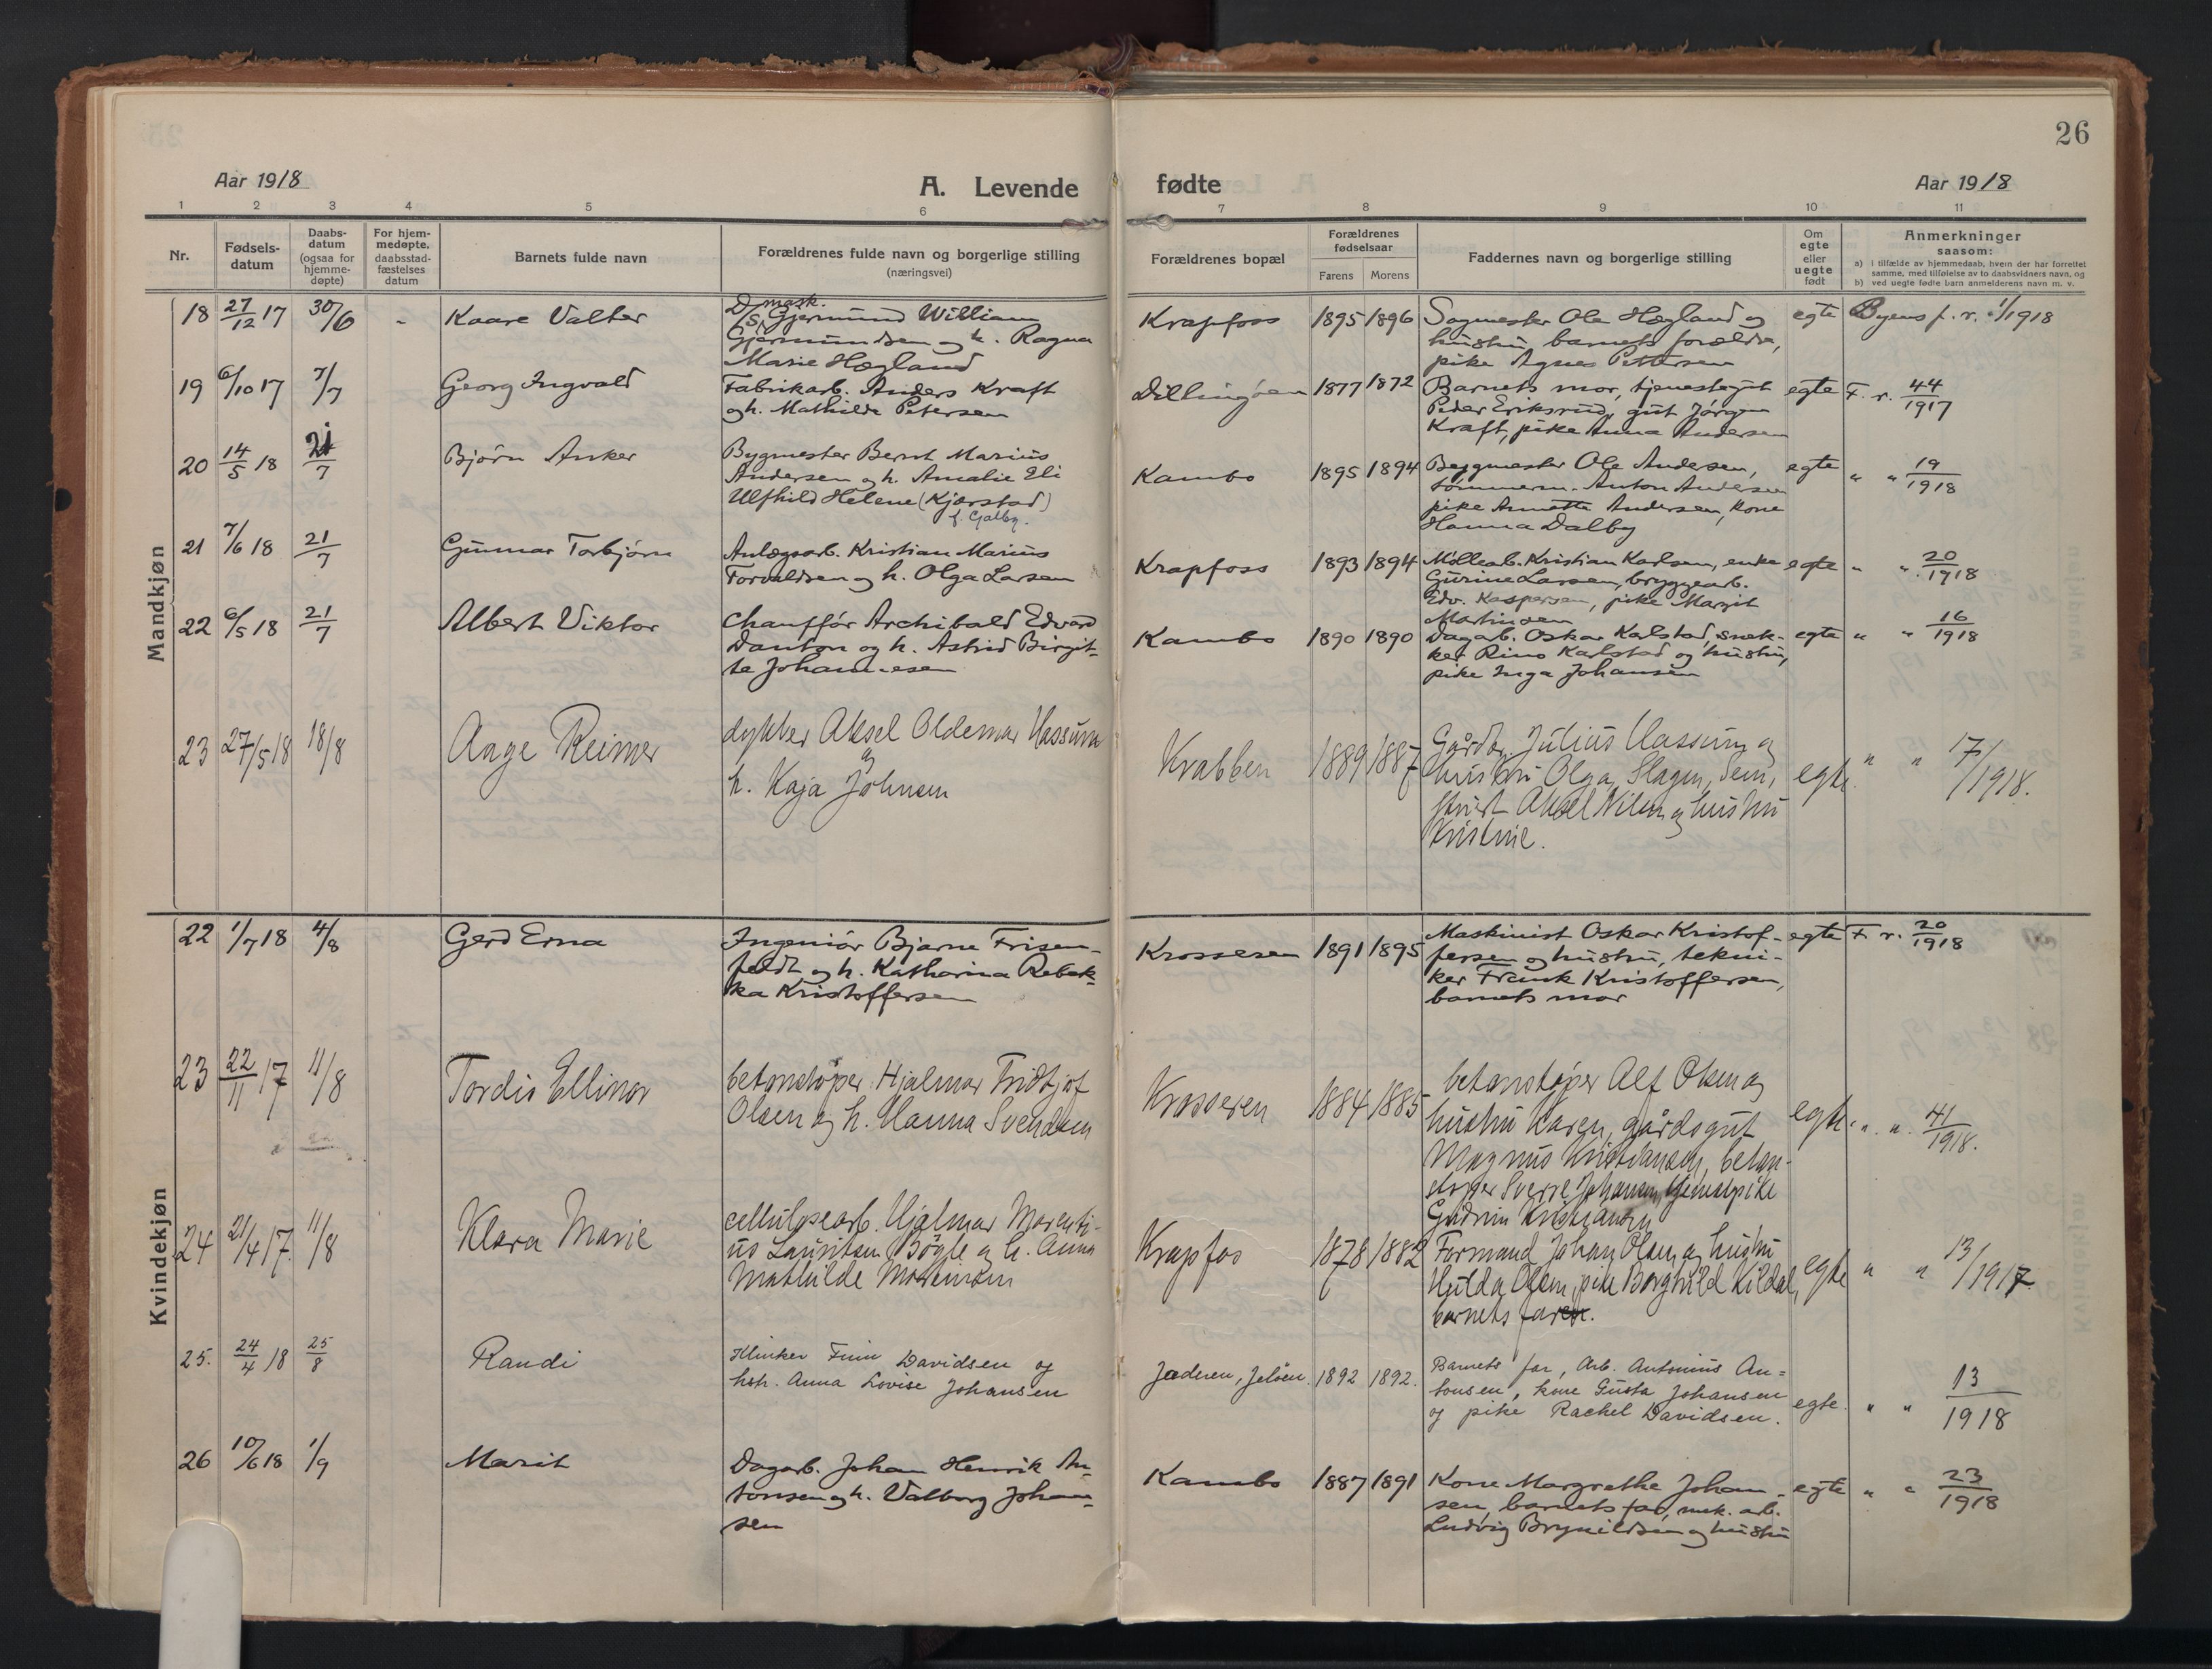 26
Aar 1918
A. Levende fødte
Aar 1918
1 2 3 4 5 6 7 8 9 10 11
Nr.
Fødsels-
datum
Daabs-
datum
(ogsaa for
hjemme-
døpte)
For hjem-
medøpte,
daabsstad-
fæstelses
datum
Barnets fulde navn
Forældrenes fulde navn og borgerlige stilling
(næringsvei)
Forældrenes bopæl
Forældrenes
fødselsaar
Farens Morens
Faddernes navn og borgerlige stilling
Om
egte
eller
uegte
født
Anmerkninger
saasom:
a) i tilfælde av hjemmedaab, hvem der har forrettet
samme, med tilføielse av to daabsvidners navn, og
b) ved uegte fødte barn anmelderens navn m. v.
Mandkjøn
18 27/12 17 30/6 - Kaare Valter
D/S mask. Gjermund William
Gjermundsen og h. Ragna
Marie Hogland
Krapfoss 1895 1896
Sagmester Ole Hogland og
hustru, barnets forældre,
pike Agnes Pettersen
egte Byens f. r. 1/1918
19 6/10 17 7/7 Georg Ingvald
Fabrikarb. Anders Kraft
og h. Mathilde Petersen
Dillingøen 1877 1872
Barnets mor, tjenestegut
Peder Eriksrud, gut Jørgen
Kraft, pike Anna Andersen
egte F. r. 44/1917
20 14/5 18 21/7 Bjørn Anker
Bygmester Bernt Marius
Andersen og h. Amalie Eli
Ulfhild Helene (Kjørstad)
f. Galby.
Kambo 1895 1894
Bygmester Ole Andersen,
tømmerm. Anton Andersen
pike Annette Andersen, kone
Hanna Dalby
egte " " 19/1918
21 7/6 18 21/7 Gunnar Torbjørn
Anlægsarb. Kristian Marius
Torvaldsen og h. Olga Larsen
Krapfoss 1893 1894
Møllearb. Kristian Karlsen, enke
Gurine Larsen, bryggearb.
Edv. Kaspersen, pike Margit
Martinsen
egte " " 20/1918
22 6/5 18 21/7 Albert Viktor
Chauffør Archibald Edvard
Danton og h. Astrid Birgit-
te Johannesen
Kambo 1890 1890
Dagarb. Oskar Kalstad, snek-
ker Rino Karlstad og hustru,
pike Inga Johansen
egte " " 16/1918
23 27/5 18 18/8 Aage Reimer
dykker Aksel Oldemar Hassum
og
h. Kaja Johnsen
Krabben 1889 1887
Gårdbr. Julius Hassum og
hustru Olga, Slagen, Sem,
Aksel Nilsen og hustru
Kristine.
egte " " 17/1918.
Kvindekjøn
22 1/7 18 4/8 Gerd Erna
Ingeniør Bjarne Frisen-
feldt og h. Katharina Rebek-
ka Kristoffersen
Krosseren 1891 1895
Maskinist Oskar Kristof-
fersen og hustru, tekni-
ker Frank Kristoffersen,
barnets mor
egte F. r. 20/1918
23 22/11 17 11/8 Tordis Ellinor
betonstøper Hjalmar Fridtjof
Olsen og h. Hanna Svendsen
Krosseren 1884 1885
betonstøper Alf Olsen og
hustru Karen, gårdsgut
Magnus Kristiansen, beton-
støper Sverre Johansen, tjenestpike
Gudrun Kristiansen
egte. " " 41/1918.
24 21/4 17. 11/8 Klara Marie
cellulosearb. Hjalmar Marenti-
us Lauritsen Bøgle og h. Anna
Mathilde Mortensen
Krapfos 1878 1882
Formand Johan Olsen og hustru
Hulda Olsen, pike Borghild Kildal,
barnets faren.
egte " " 13/1917.
25. 24/4 18 25/8 Randi
Klinker Finn Davidsen og
hsh. Anna Lovise Johansen
Jæderen, Jeløen. 1892 1892.
Barnets far, Arb. Antonius An-
tonsen, kone Gusta Johansen
og pike Rachel Davidsen.
egte. " " 13/1918
26 10/6 18 1/9 Marit
Dagarb. Johan Henrik An-
tonsen og h. Valborg Johan-
sen
Kambo 1887 1891
Kone Margrethe Johan-
sen, barnets far, mek. arb.
Ludvig Brynildsen og hustru
egte " " 23/1918